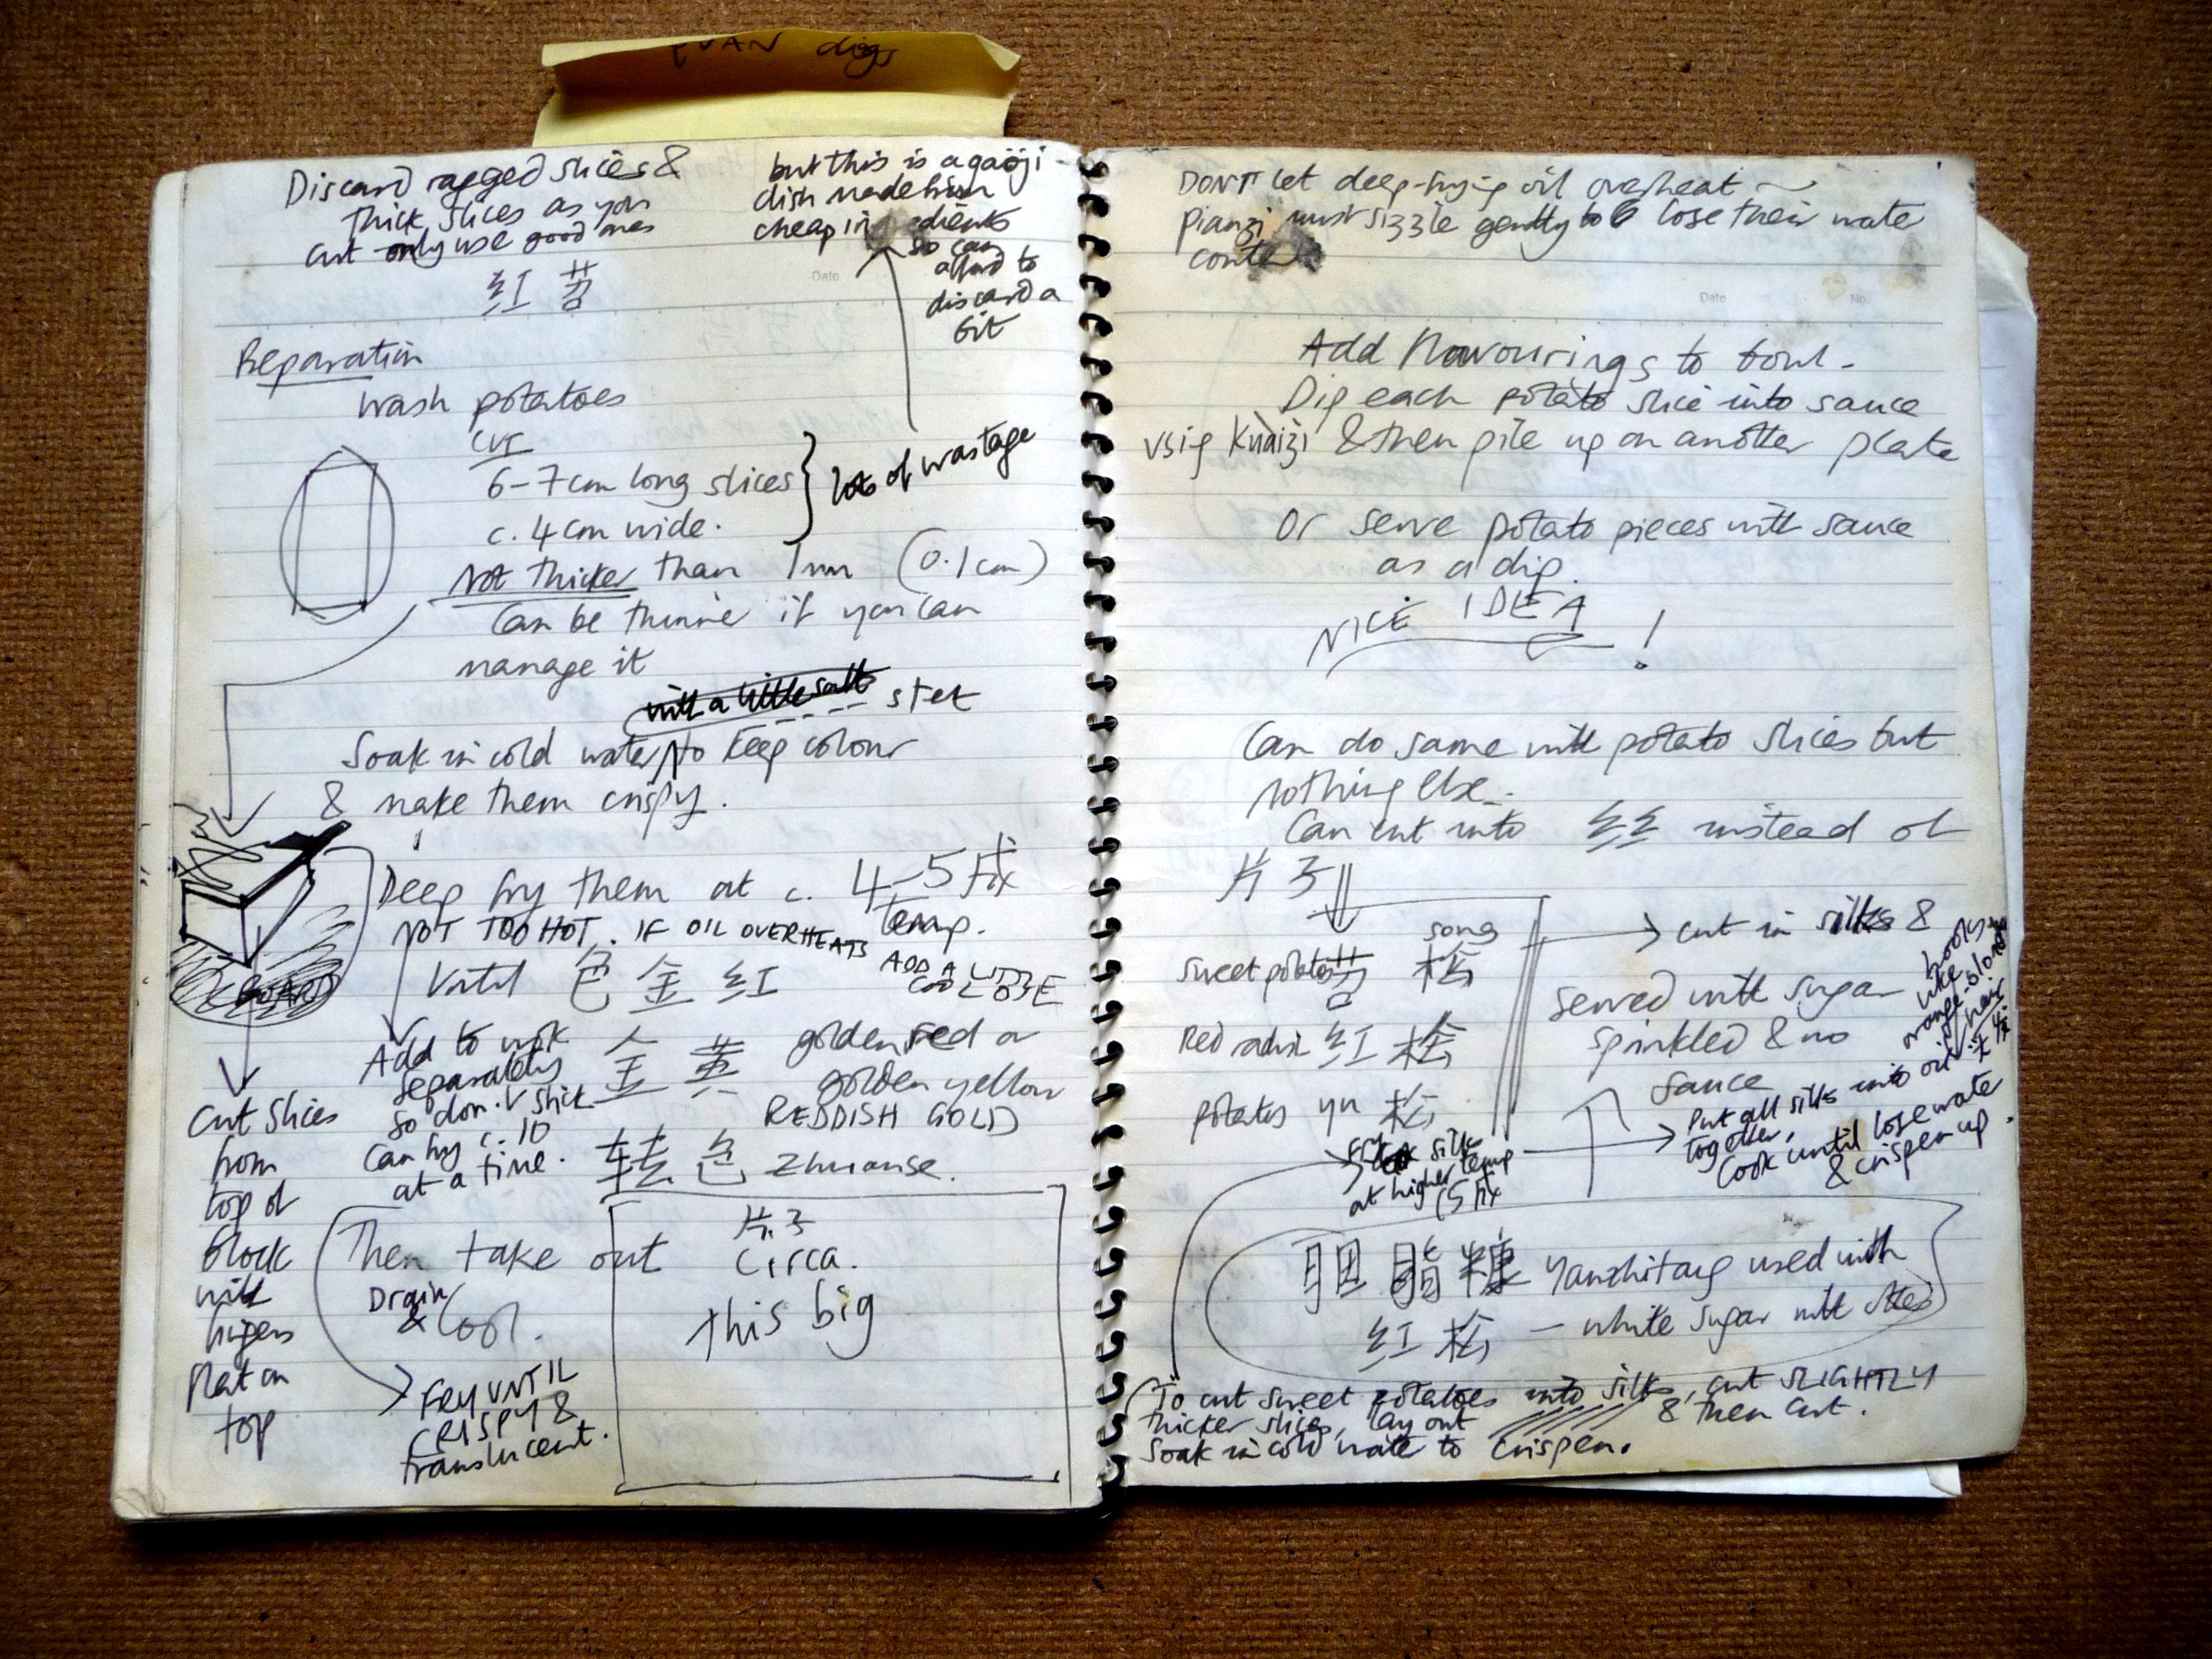 digs
Discard ragged slices &
thick slices as you
cut only use good ones
红苕
but this is a gaoji
dish made from
cheap ingredients
so can
afford to
discard a
bit
Preparation
wash potatoes
cut
6-7cm long slices
c. 4cm wide.
lots of wastage
Not thicker than 1mm (0.1cm)
Can be thinner if you can
manage it
with a little salt stet
Soak in cold water to keep colour
& make them crispy.
Deep fry them at c. 4-5
temp.
NOT TOO HOT. IF OIL OVERHEATS
ADD A LITTLE
COOL
Until 色金红
BOARD
Add to wok
separately
so don't stick
Can fry c. 10
at a time.
金黄 golden red or
golden yellow
REDDISH GOLD
转色 zhuanse.
Cut slices
from
top of
block
with
fingers
flat on
top
Then take out
Drain
& Cool.
FRY UNTIL
CRISPY &
translucent.
片子
circa.
this big
DON'T let deep-frying oil overheat -
pianzi must sizzle gently to lose their water
content
Add flavourings to bowl -
Dip each potato slice into sauce
using Kuaizi & then pile up on another plate
Or serve potato pieces with sauce
as a dip.
NICE IDEA!
Can do same with potato slices but
nothing else.
Can cut into 丝 instead of
片子
song
sweet potato 苕松
Red radish 红松
potatoes yu 松
cut in silks &
served with sugar
sprinkled & no
sauce
looks
like
orange-coloured
hair
fry silks
at higher temp
(5
Put all silks into oil
together,
Cook until lose water
& crispen up.
胭脂糖 Yanzhitang used with
红松 - white sugar with others
To cut sweet potatoes into silks, cut SLIGHTLY
thicker slices, lay out & then cut.
Soak in cold water to crispen.